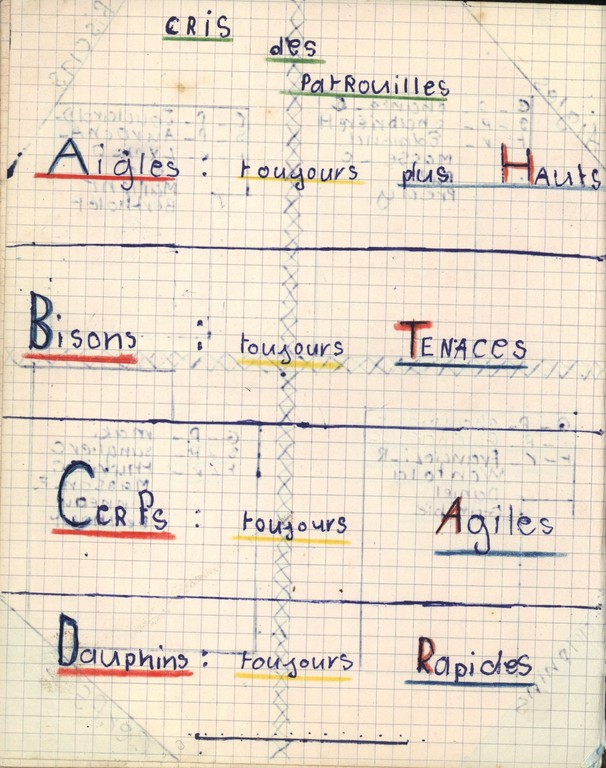 CRIS
des
PatRouilles
Aigles : toujours plus Hauts
Bisons : toujours TENACES
CeRFs : toujours Agiles
Dauphins : toujours Rapides